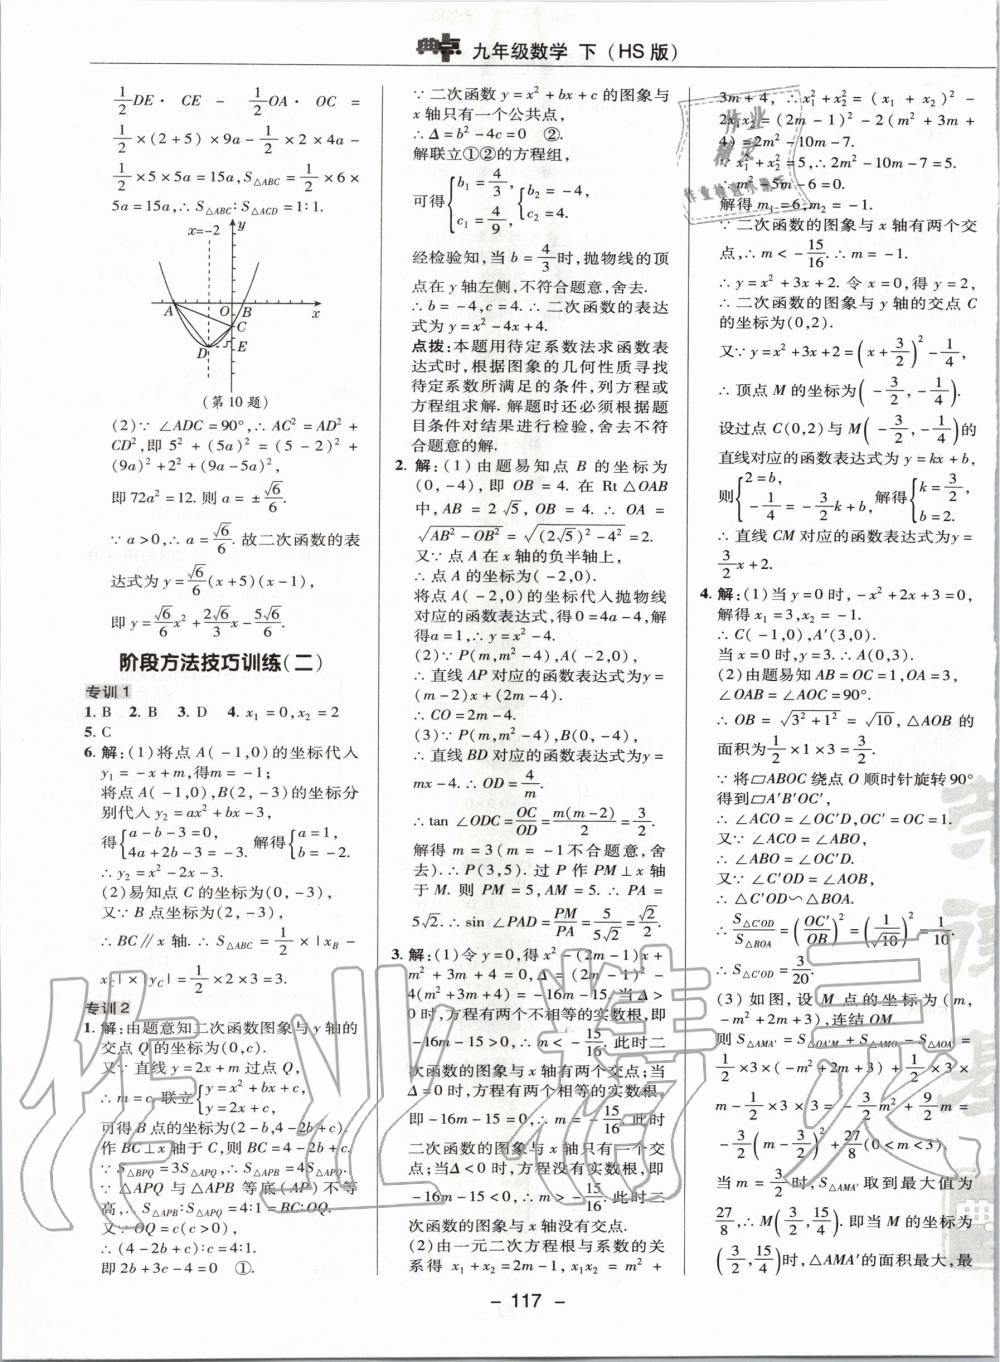 典中点 九年级数学 下（HS版）
1/2 DE·CE－1/2 OA·OC＝
1/2×(2+5)×9a－1/2×2×4a－
1/2×5×5a＝15a, S△ABC＝1/2×6×
5a＝15a,∴S△ABC∶S△ACD＝1∶1.
x=-2
y
A
O
B
x
C
D
E
(第10题)
(2)∵∠ADC＝90°,∴AC²＝AD²＋
CD²,即5²＋(5a)²＝(5－2)²＋
(9a)²＋2²＋(9a－5a)²,
即72a²＝12.则a＝±√6/6.
∵a＞0,∴a＝√6/6.故二次函数的表
达式为y＝√6/6(x＋5)(x－1),
即y＝√6/6x²＋2√6/3x－5√6/6.
阶段方法技巧训练(二)
专训1
1. B 2. B 3. D 4. x₁＝0,x₂＝2
5. C
6. 解:(1)将点A(－1,0)的坐标代入
y₁＝－x＋m,得m＝－1;
将点A(－1,0),B(2,－3)的坐标分
别代入y₂＝ax²＋bx－3,
得{a－b－3＝0, 4a＋2b－3＝－3. 解得{a＝1, b＝－2.
∴y₂＝x²－2x－3.
(2)易知点C的坐标为(0,－3),
又∵B点坐标为(2,－3),
∴BC∥x轴.∴S△ABC＝1/2×|xB－
xC|×|yC|＝1/2×2×3＝3.
专训2
1. 解:由题意知二次函数图象与y轴的
交点Q的坐标为(0,c).
又∵直线y＝2x＋m过点Q,
∴m＝c.联立{y＝x²＋bx＋c, y＝2x＋c,
可得B点的坐标为(2－b,4－2b＋c).
作BC⊥x轴于C,则BC＝4－2b＋c.
∵S△BPQ＝3S△APQ,∴S△APB＝4S△APQ.
∵△APQ与△APB等底(AP)不等
高,∴S△APB∶S△APQ＝4∶1＝BC∶OQ.
又∵OQ＝c(c＞0),
∴(4－2b＋c)∶c＝4∶1.
即2b＋3c－4＝0 ①.
∵二次函数y＝x²＋bx＋c的图象与
x轴只有一个公共点,
∴Δ＝b²－4c＝0 ②.
解联立①②的方程组,
可得{b₁＝4/3, c₁＝4/9, {b₂＝－4, c₂＝4.
经检验知,当b＝4/3时,抛物线的顶
点在y轴左侧,不符合题意,舍去.
∴b＝－4,c＝4.∴二次函数的表达
式为y＝x²－4x＋4.
点拨:本题用待定系数法求函数表
达式时,根据图象的几何性质寻找
待定系数所满足的条件,列方程或
方程组求解.解题时还必须根据题
目条件对结果进行检验,舍去不符
合题意的解.
2. 解:(1)由题易知点B的坐标为
(0,－4),即OB＝4.在Rt△OAB
中,AB＝2√5,OB＝4.∴OA＝
√(AB²－OB²)＝√((2√5)²－4²)＝2.
又∵点A在x轴的负半轴上,
∴点A的坐标为(－2,0).
将点A(－2,0)的坐标代入抛物线
对应的函数表达式,得0＝4a－4,解
得a＝1,∴y＝x²－4.
(2)∵P(m,m²－4),A(－2,0),
∴直线AP对应的函数表达式为y＝
(m－2)x＋(2m－4).
∴CO＝2m－4.
(3)∵P(m,m²－4),B(0,－4),
∴直线BD对应的函数表达式为y＝
mx－4.∴OD＝4/m.
∴tan∠ODC＝OC/OD＝m(m－2)/2＝3/2.
解得m＝3(m＝－1不合题意,舍
去).∴P(3,5).过P作PM⊥x轴
于M.则PM＝5,AM＝5.∴PA＝
5√2.∴sin∠PAD＝PM/PA＝5/5√2＝√2/2.
3. 解:(1)令y＝0,得x²－(2m－1)x＋
m²＋3m＋4＝0,Δ＝(2m－1)²－
4(m²＋3m＋4)＝－16m－15.当Δ＞
0时,方程有两个不相等的实数根,即
－16m－15＞0,∴m＜－15/16.此时二
次函数的图象与x轴有两个交点;当
Δ＝0时,方程有两个相等的实数根,
即－16m－15＝0,∴m＝－15/16.此时
二次函数的图象与x轴只有一个交
点;当Δ＜0时,方程没有实数根,即
－16m－15＜0,∴m＞－15/16.此时二
次函数的图象与x轴没有交点.
(2)由一元二次方程根与系数的关
系得x₁＋x₂＝2m－1,x₁x₂＝m²＋
3m＋4,∴x₁²＋x₂²＝(x₁＋x₂)²－
2x₁x₂＝(2m－1)²－2(m²＋3m＋
4)＝2m²－10m－7.
∵x₁²＋x₂²＝5,∴2m²－10m－7＝5.
∴m²－5m－6＝0.
解得m₁＝6,m₂＝－1.
∵二次函数的图象与x轴有两个交
点,∴m＜－15/16.∴m＝－1.
∴y＝x²＋3x＋2.令x＝0,得y＝2,
∴二次函数的图象与y轴的交点C
的坐标为(0,2).
又∵y＝x²＋3x＋2＝(x＋3/2)²－1/4,
∴顶点M的坐标为(－3/2,－1/4).
设过点C(0,2)与M(－3/2,－1/4)的
直线对应的函数表达式为y＝kx＋b,
则{2＝b, －1/4＝－3/2k＋b, 解得{k＝3/2, b＝2.
∴直线CM对应的函数表达式为y＝
3/2x＋2.
4. 解:(1)当y＝0时,－x²＋2x＋3＝0,
解得x₁＝3,x₂＝－1.
∴C(－1,0),A′(3,0).
当x＝0时,y＝3.∴A(0,3).
(2)由题易知AB＝OC＝1,OA＝3,
∠OAB＝∠AOC＝90°.
∴OB＝√(3²＋1²)＝√10,△AOB的
面积为1/2×1×3＝3/2.
∵将▱ABOC绕点O顺时针旋转90°
得到▱A′B′OC′,
∴∠ACO＝∠OC′D,OC′＝OC＝1.
又∵∠ACO＝∠ABO,
∴∠ABO＝∠OC′D.
又∵∠C′OD＝∠AOB,
∴△C′OD∽△BOA.
∴S△C′OD/S△BOA＝(OC′/OB)²＝(1/√10)²＝1/10.
∴S△C′OD＝3/20.
(3)如图,设M点的坐标为(m,
－m²＋2m＋3),连结OM.
则S△AMA′＝S△OA′M＋S△AMO－S△AOA′＝
1/2×3×(－m²＋2m＋3)＋1/2×3×
m－1/2×3×3＝－3/2m²＋9/2m＝
－3/2(m－3/2)²＋27/8(0＜m＜3).
当m＝3/2时,S△AMA′取到最大值为
27/8,∴M(3/2,15/4).即当M的坐标为
(3/2,15/4)时,△AMA′的面积最大,最
－117－
作业精灵